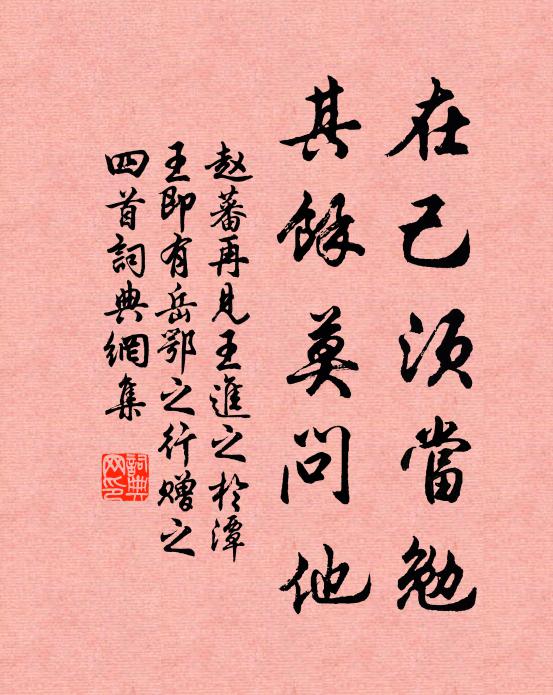 在己須當勉
其餘莫問他
赵蕃再见王進之於潭
王即有岳鄂之行赠之
四首詞典網集
詞典网印